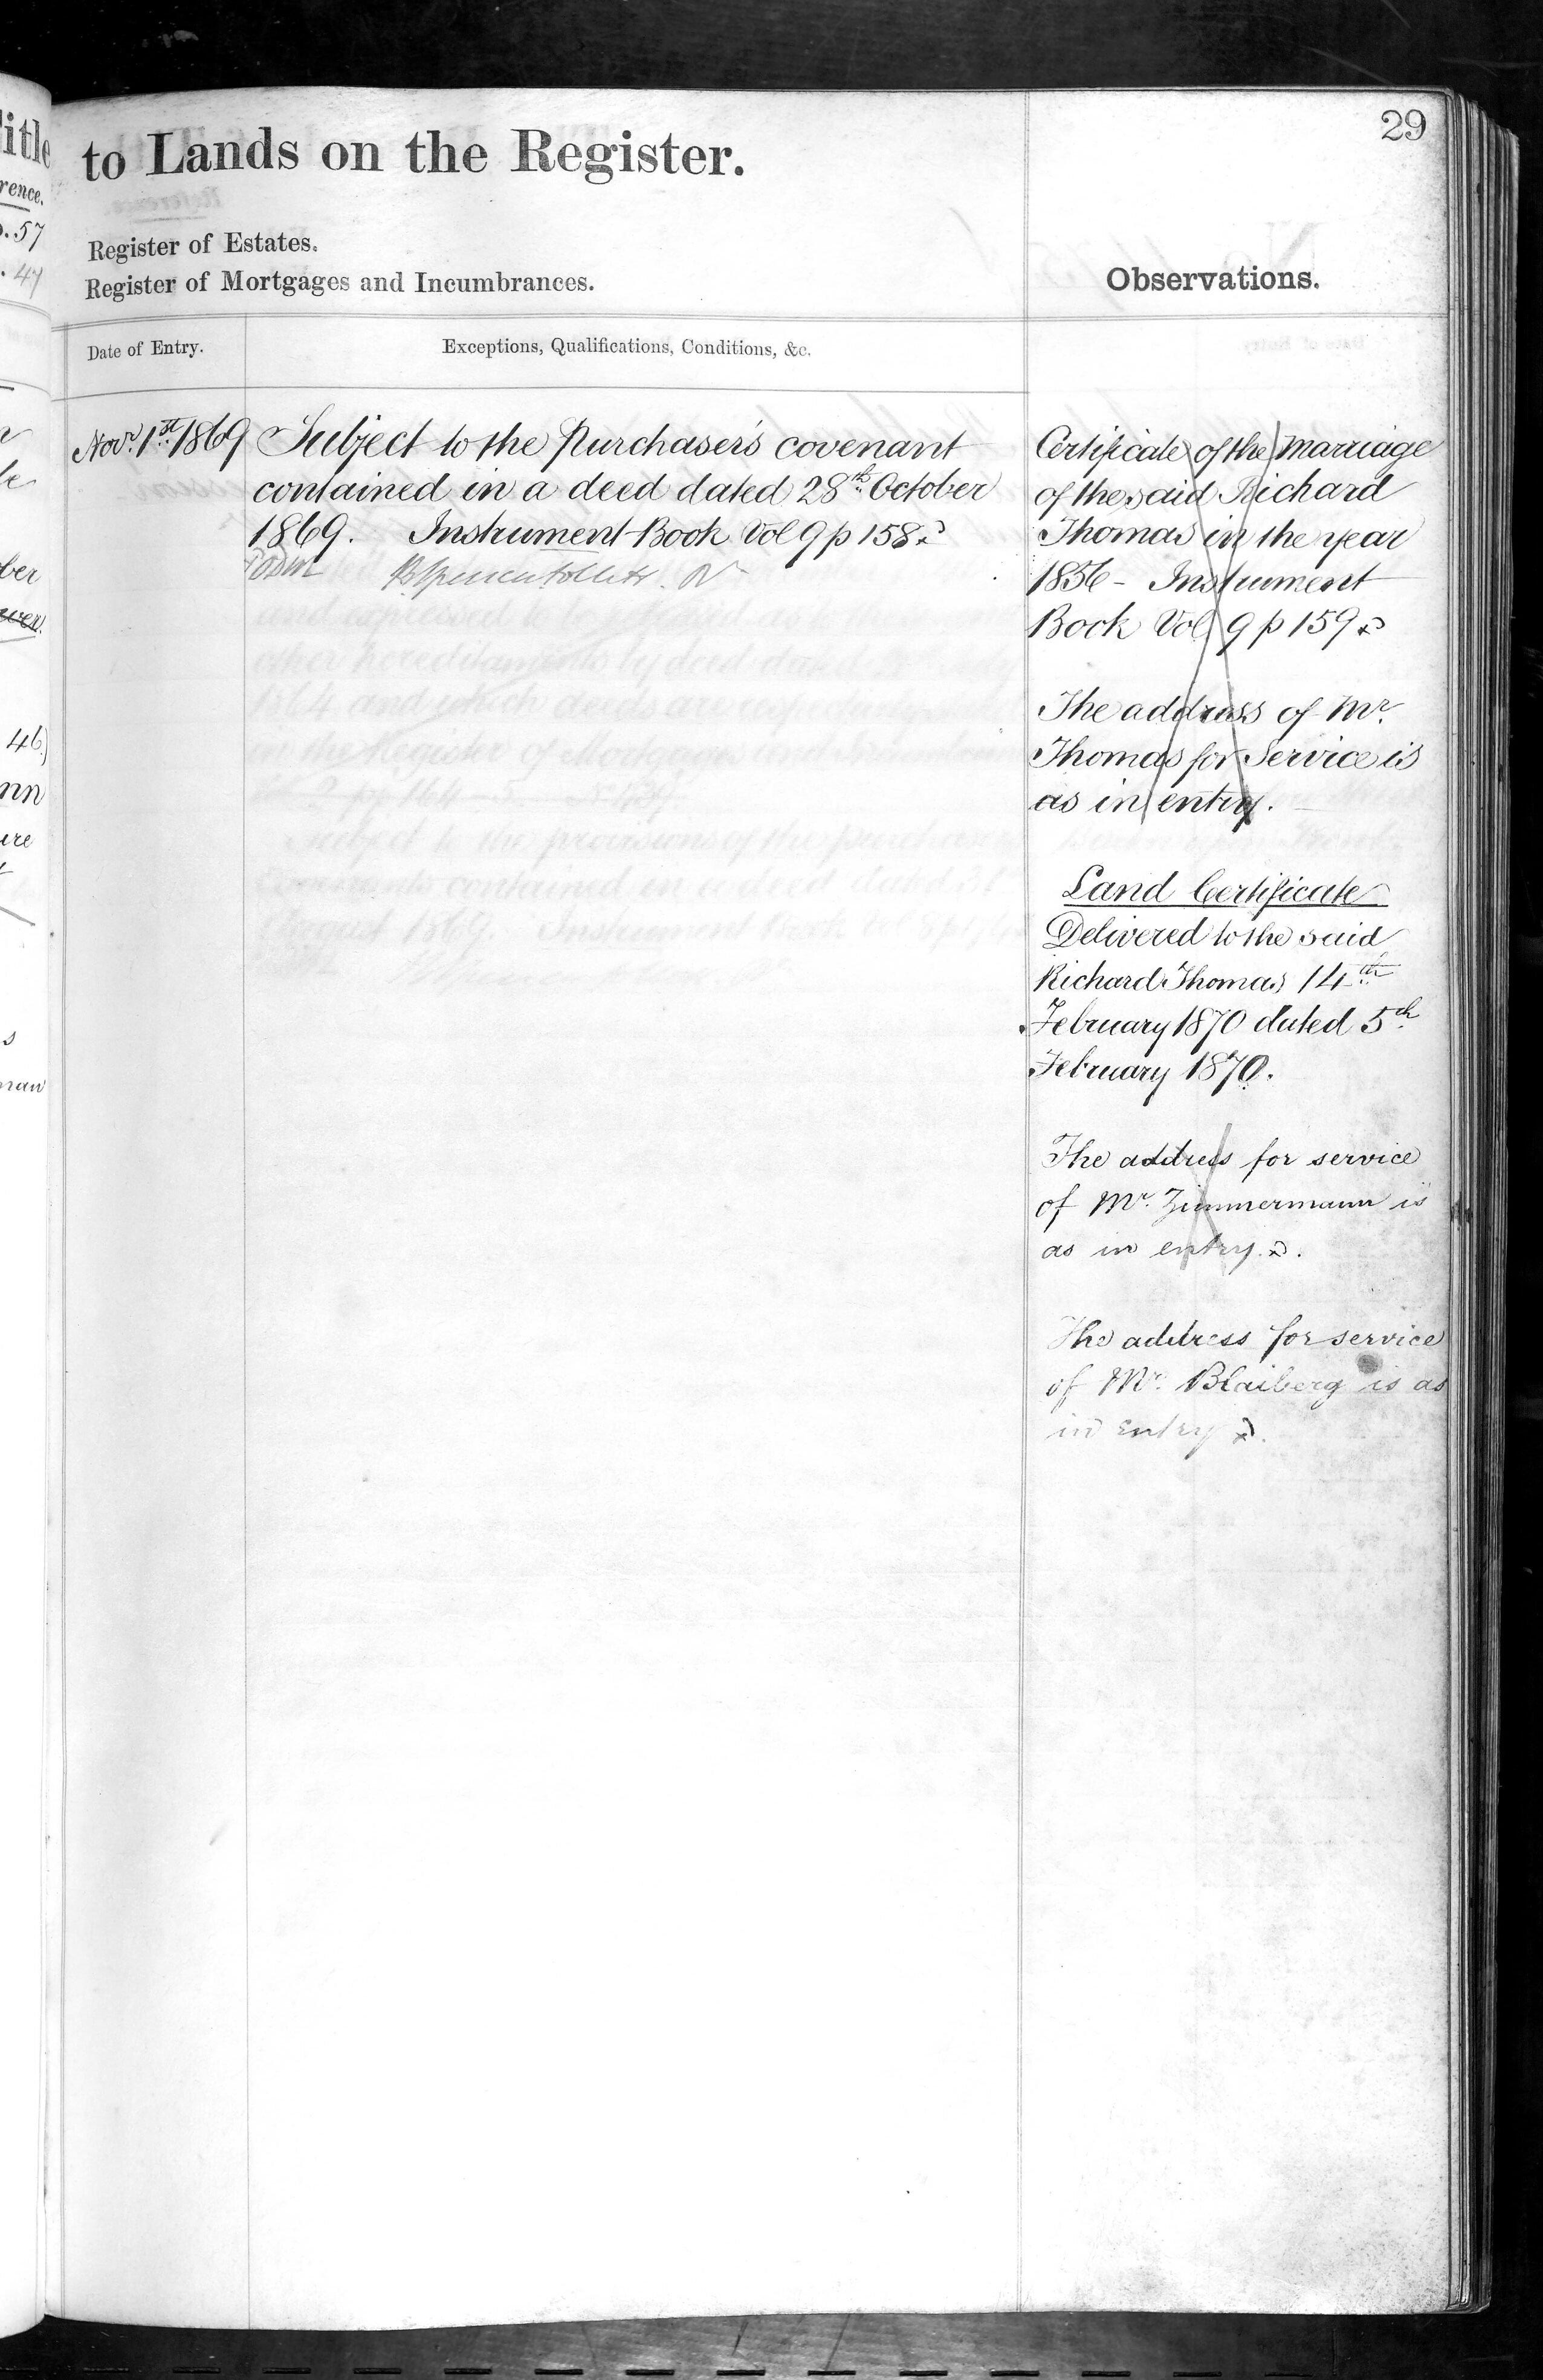 29
to Lands on the Register.
Register of Estates.
Register of Mortgages and Incumbrances.
Observations.
Date of Entry.
Exceptions, Qualifications, Conditions, &c.
Novr. 1st. 1869
Subject to the Purchaser's covenant
contained in a deed dated 28th. October
1869. Instrument Book Vol 9 p 158
Certificate of the Marriage
of the said Richard
Thomas in the year
1856 - Instrument
Book Vol 9 p 159
The address of Mr.
Thomas for Service is
as in entry.
Land Certificate
Delivered to the said
Richard Thomas 14th
February 1870 dated 5th
February 1870.
The address for service
of Mr. Zimmermann is
as in entry.
The address for service
of Mr. Blaiberg is as
in entry